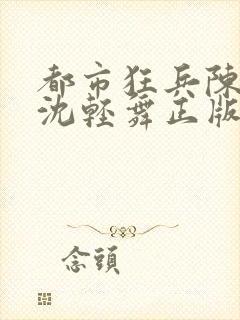 都市狂兵陳
沈輕舞正版
念頭